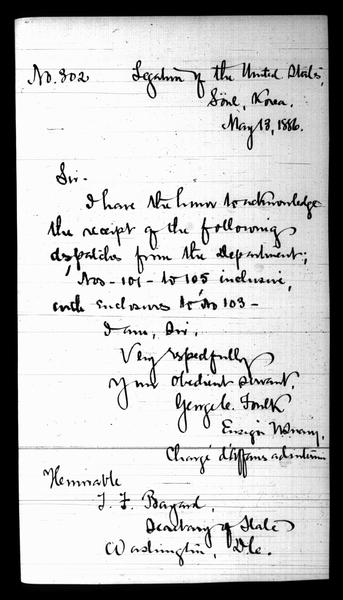 No. 302
Legation of the United States,
Söul, Korea,
May 13, 1886.
Sir-
I have the honor to acknowledge
the receipt of the following
dispatches from the Department;
Nos- 101- to 105 inclusive,
with enclosures to No 103-
I am, Sir,
Very respectfully
Your obedient servant,
George C. Foulk
Ensign U.S. Navy,
Chargé d'affaires ad interim
Honorable
T. F. Bayard,
Secretary of State
Washington, D.C.